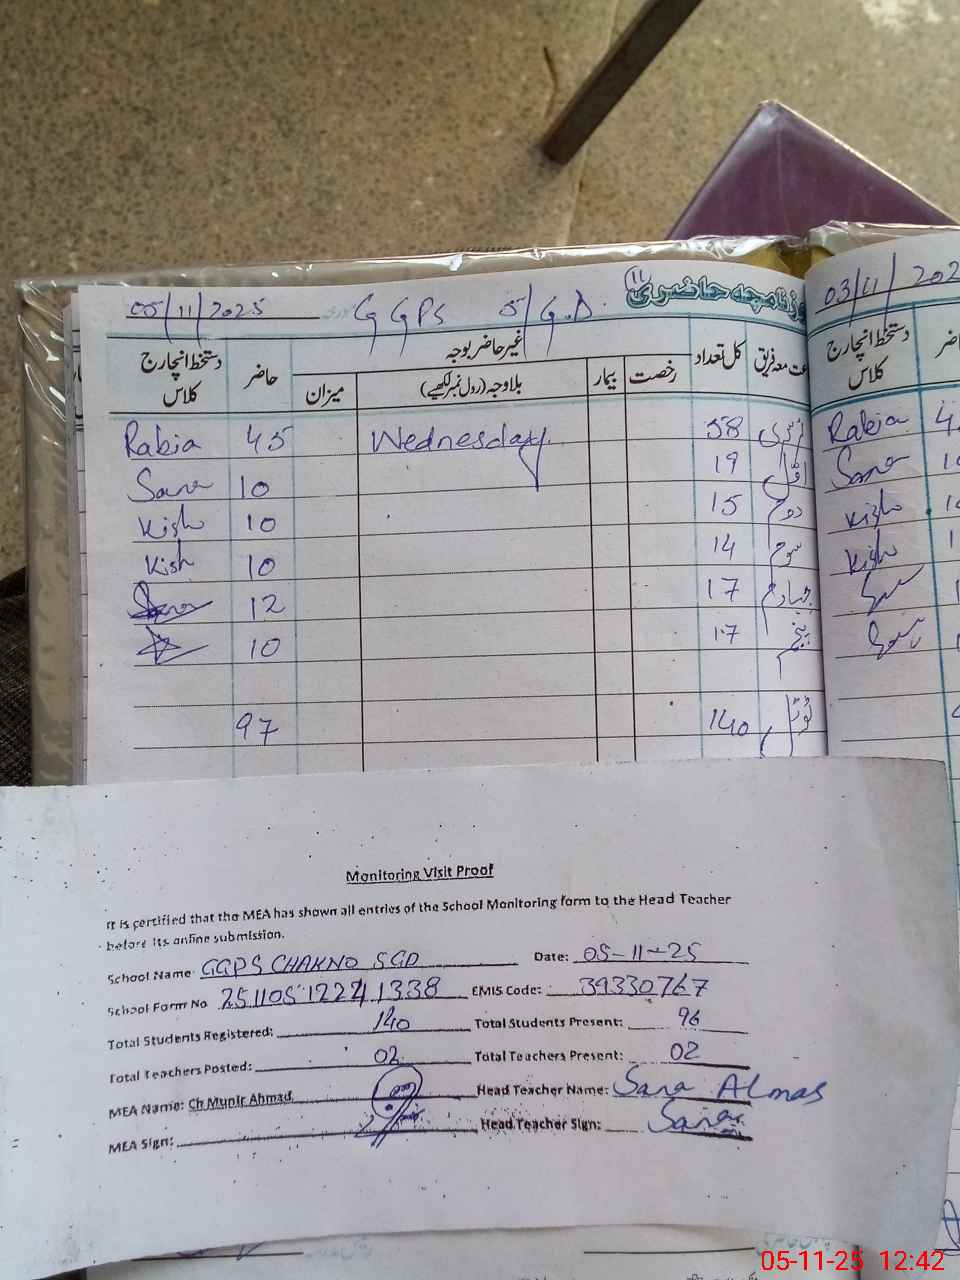 05/11/2025 GGPS 5/G.D روزنامچہ حاضری 11
دستخط انچارج کلاس حاضر غیر حاضر بوجہ کل تعداد
میزان بلاوجہ (رول نمبر لکھیے) بیمار رخصت
Rabia 45 Wednesday 58 نرسری
Sana 10 19 اوّل
Kish 10 15 دوم
Kish 10 14 سوم
12 17 چہارم
10 17 پنجم
97 140 ٹوٹل
03/11/202
دستخط انچارج کلاس
Rabia
Sana
Kish
Kish
Monitoring Visit Proof
It is certified that the MEA has shown all entries of the School Monitoring form to the Head Teacher
before its online submission.
School Name: GGPS CHAKNO 5GD Date: 05-11-25
School Form No EMIS Code: 39330767
Total Students Registered: 140 Total Students Present: 96
Total Teachers Posted: 02 Total Teachers Present: 02
MEA Name: Ch Munir Ahmad Head Teacher Name: Sana Almas
MEA Sign: Head Teacher Sign: Sana
05-11-25 12:42